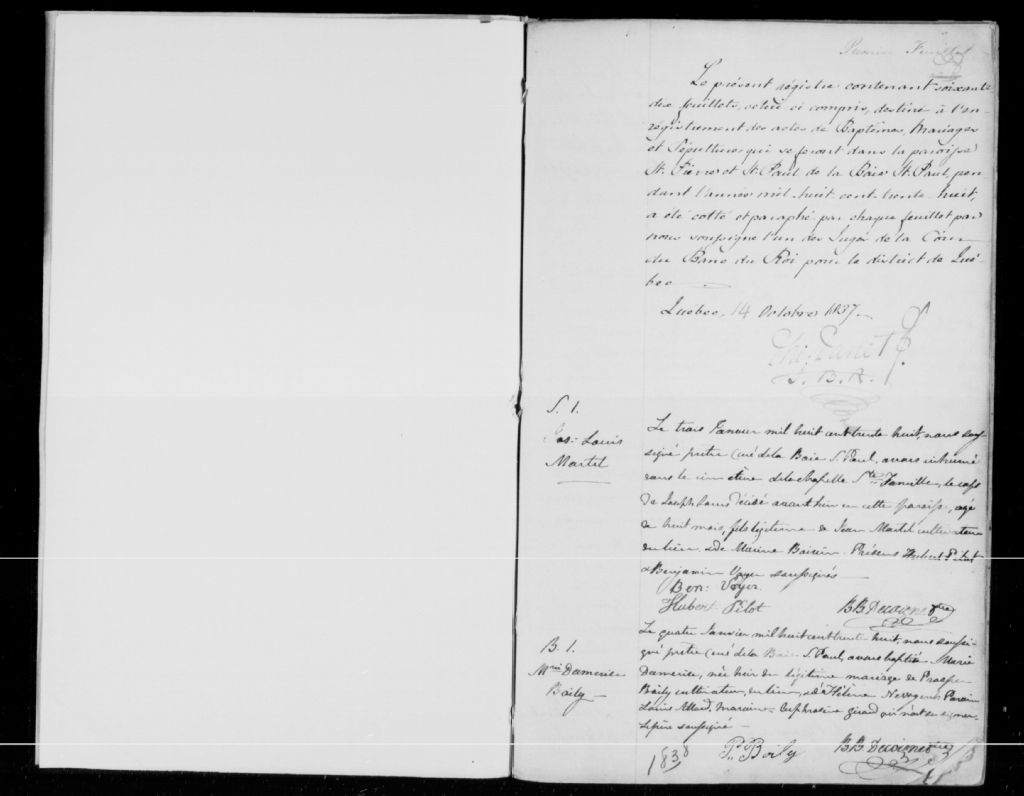 Premier Feuillet
Le présent régistre contenant soixante
dix feuillets, celui ci compris, destiné à l'en-
régistrement des actes de Baptêmes, Mariages
et Sépultures qui se feront dans la paroisse
St. Pierre et St. Paul de la Baie St. Paul, pen
dant l'année mil huit cent trente huit,
a été cotté et paraphé par chaque feuillet par
nous soussigné l'un des Juges de la Cour
du Banc du Roi pour le district de Qué-
bec
Québec, 14 Octobre 1837.
Ph. Panet
J. B. R.
S. 1.
Jos: Louis
Martel
Le trois Janvier mil huit cent trente huit, nous sous-
signé prêtre Curé de la Baie S. Paul, avons inhumé
dans le cimetière de la chapelle Ste le corps
de Joseph Louis décédé avant hier en cette paroisse, agé
de huit mois, fils légitime de Jean Martel cultivateur
du lieu & de Marine Présens Hubert Pilot
& Benjamin Voyer soussignés
Ben: Voyer
Hubert Pilot
B. 1.
Mrie Damerise
Boily
Le quatre Janvier mil huit cent trente huit, nous soussi-
gné prêtre Curé de la Baie S. Paul, avons baptisé Marie
Damerise, née hier du légitime mariage de Prosper
Boily cultivateur du lieu, & d'Hélène Parain
Louis Allard, Maraine Euphrosine Girard qui n'ont su signer
le père soussigné
1838 Pr. Boily